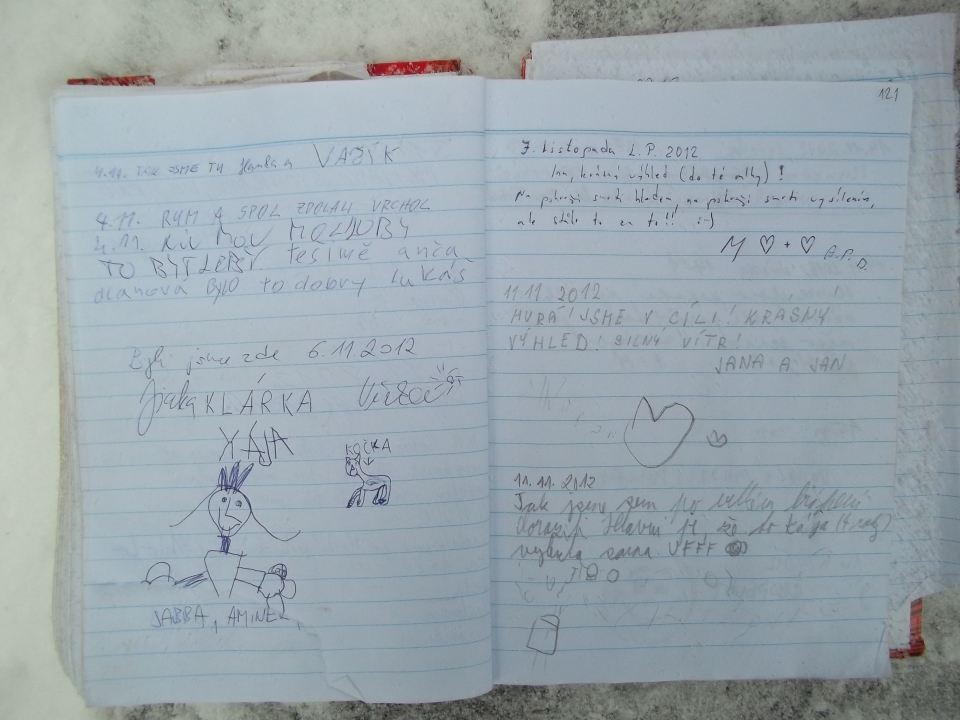 4.11. TAK JSME TU Hanka a VAŠÍK
4.11. RUM A SPOL ZDOLALI VRCHOL
4.11.
TO BÝT LEPŠÍ. těsimě anča
 bylo to dobry Lukáš
Byli jsme zde 6.11 2012
KLÁRKA
KÁJA
KOČKA
JABBA, AMINEK,
121
7. Listopadu L.P. 2012
 krásný výhled (do té mlhy) !
Na pokraji smrti hladem, na pokraji smrti vysílením,
ale stálo to za to!! :-)
M ♡ + ♡ A.P.D.
11.11.2012
HURÁ! JSME V CÍLI! KRÁSNÝ
VÝHLED! SILNÝ VÍTR!
JANA A JAN
11.11.2012
Tak jsme sem po velkém
dorazili. Hlavní je, že to Kája (4 roky)
 sama UFFF